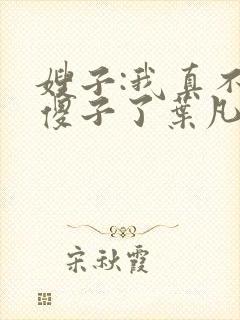 嫂子:我真不
傻子了葉凡
宋秋霞